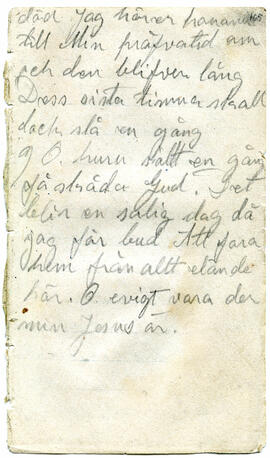 död. Jag hörer hanan
till Min pröfvotid om
och den blifver lång
Dess sista timma skall
dock slå en gång
9 O. huru sält en gång
få skåda Gud. Det
blir en salig dag då
jag får bud Att fara
hem från allt elände
här. O evigt vara der
min Jesus är.